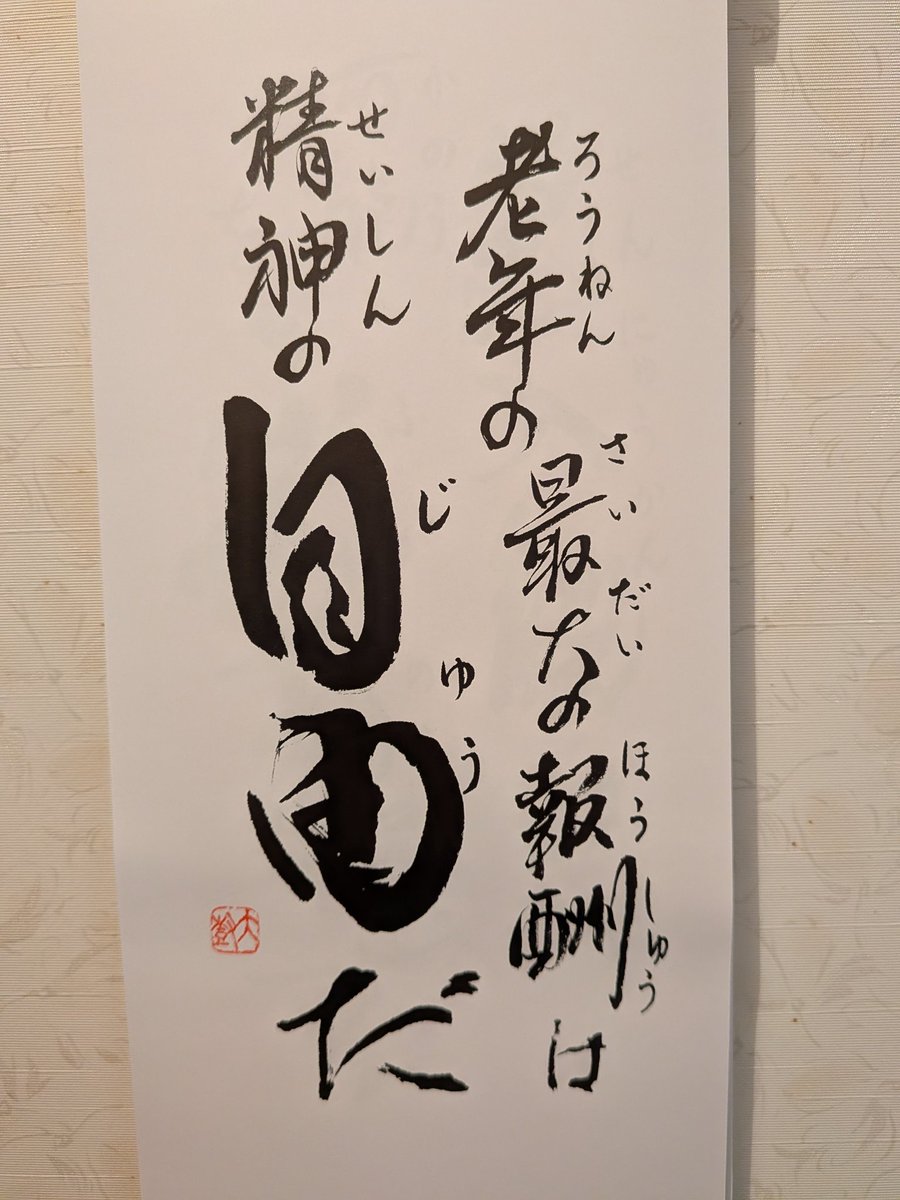 老年の最大の報酬は
ろうねん さいだい ほうしゅう
精神の自由だ
せいしん じゆう